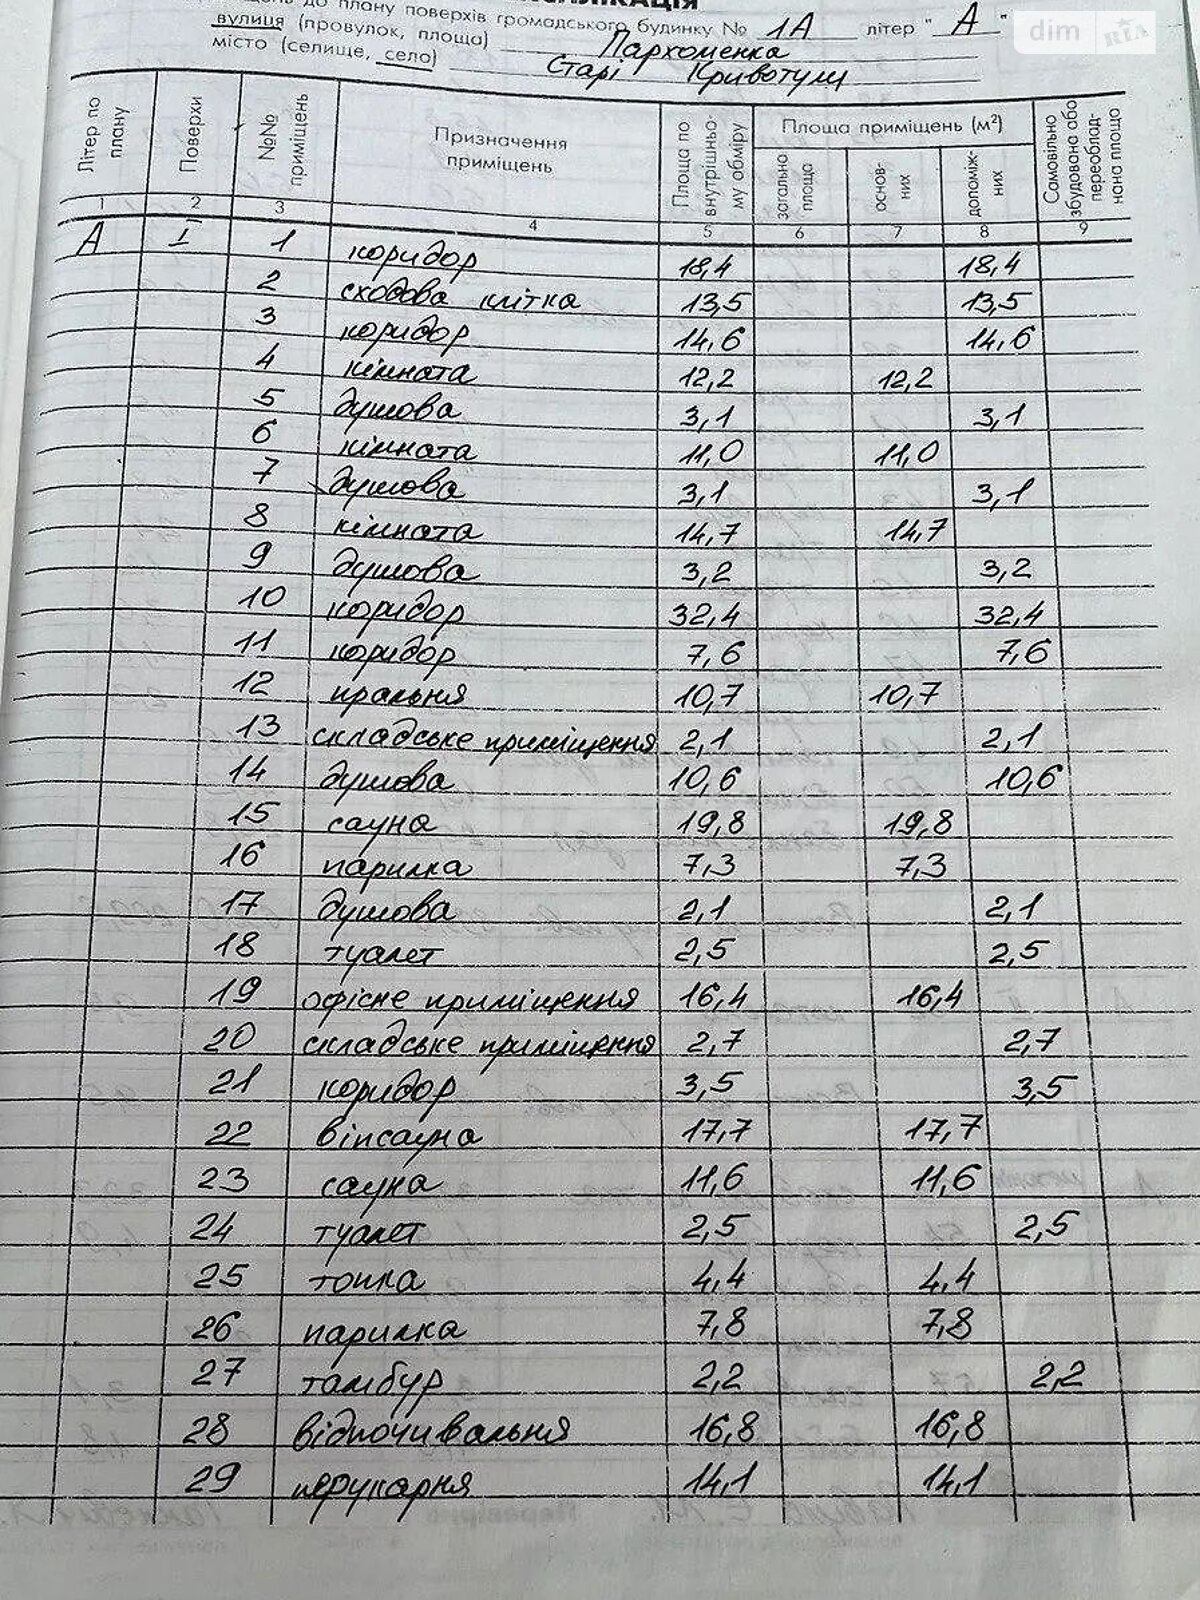 щень до плану поверхів громадського будинку № 1А літер "А"
вулиця (провулок, площа) Пархоменка
місто (селище, село) Старі Кривотули
dim RIA
Літер по плану | Поверхи | №№ приміщень | Призначення приміщень | Площа по внутрішньому обміру | Площа приміщень (м²) | загальна площа | основних | допоміжних | Самовільно збудована або переобладнана площа
1 2 3 4 5 6 7 8 9
А I 1 коридор 18,4 18,4
2 сходова клітка 13,5 13,5
3 коридор 14,6 14,6
4 кімната 12,2 12,2
5 душова 3,1 3,1
6 кімната 11,0 11,0
7 душова 3,1 3,1
8 кімната 14,7 14,7
9 душова 3,2 3,2
10 коридор 32,4 32,4
11 коридор 7,6 7,6
12 пральня 10,7 10,7
13 складське приміщення 2,1 2,1
14 душова 10,6 10,6
15 сауна 19,8 19,8
16 парилка 7,3 7,3
17 душова 2,1 2,1
18 туалет 2,5 2,5
19 офісне приміщення 16,4 16,4
20 складське приміщення 2,7 2,7
21 коридор 3,5 3,5
22 віпсауна 17,7 17,7
23 сауна 11,6 11,6
24 туалет 2,5 2,5
25 топка 4,4 4,4
26 парилка 7,8 7,8
27 тамбур 2,2 2,2
28 відпочивальня 16,8 16,8
29 перукарня 14,1 14,1